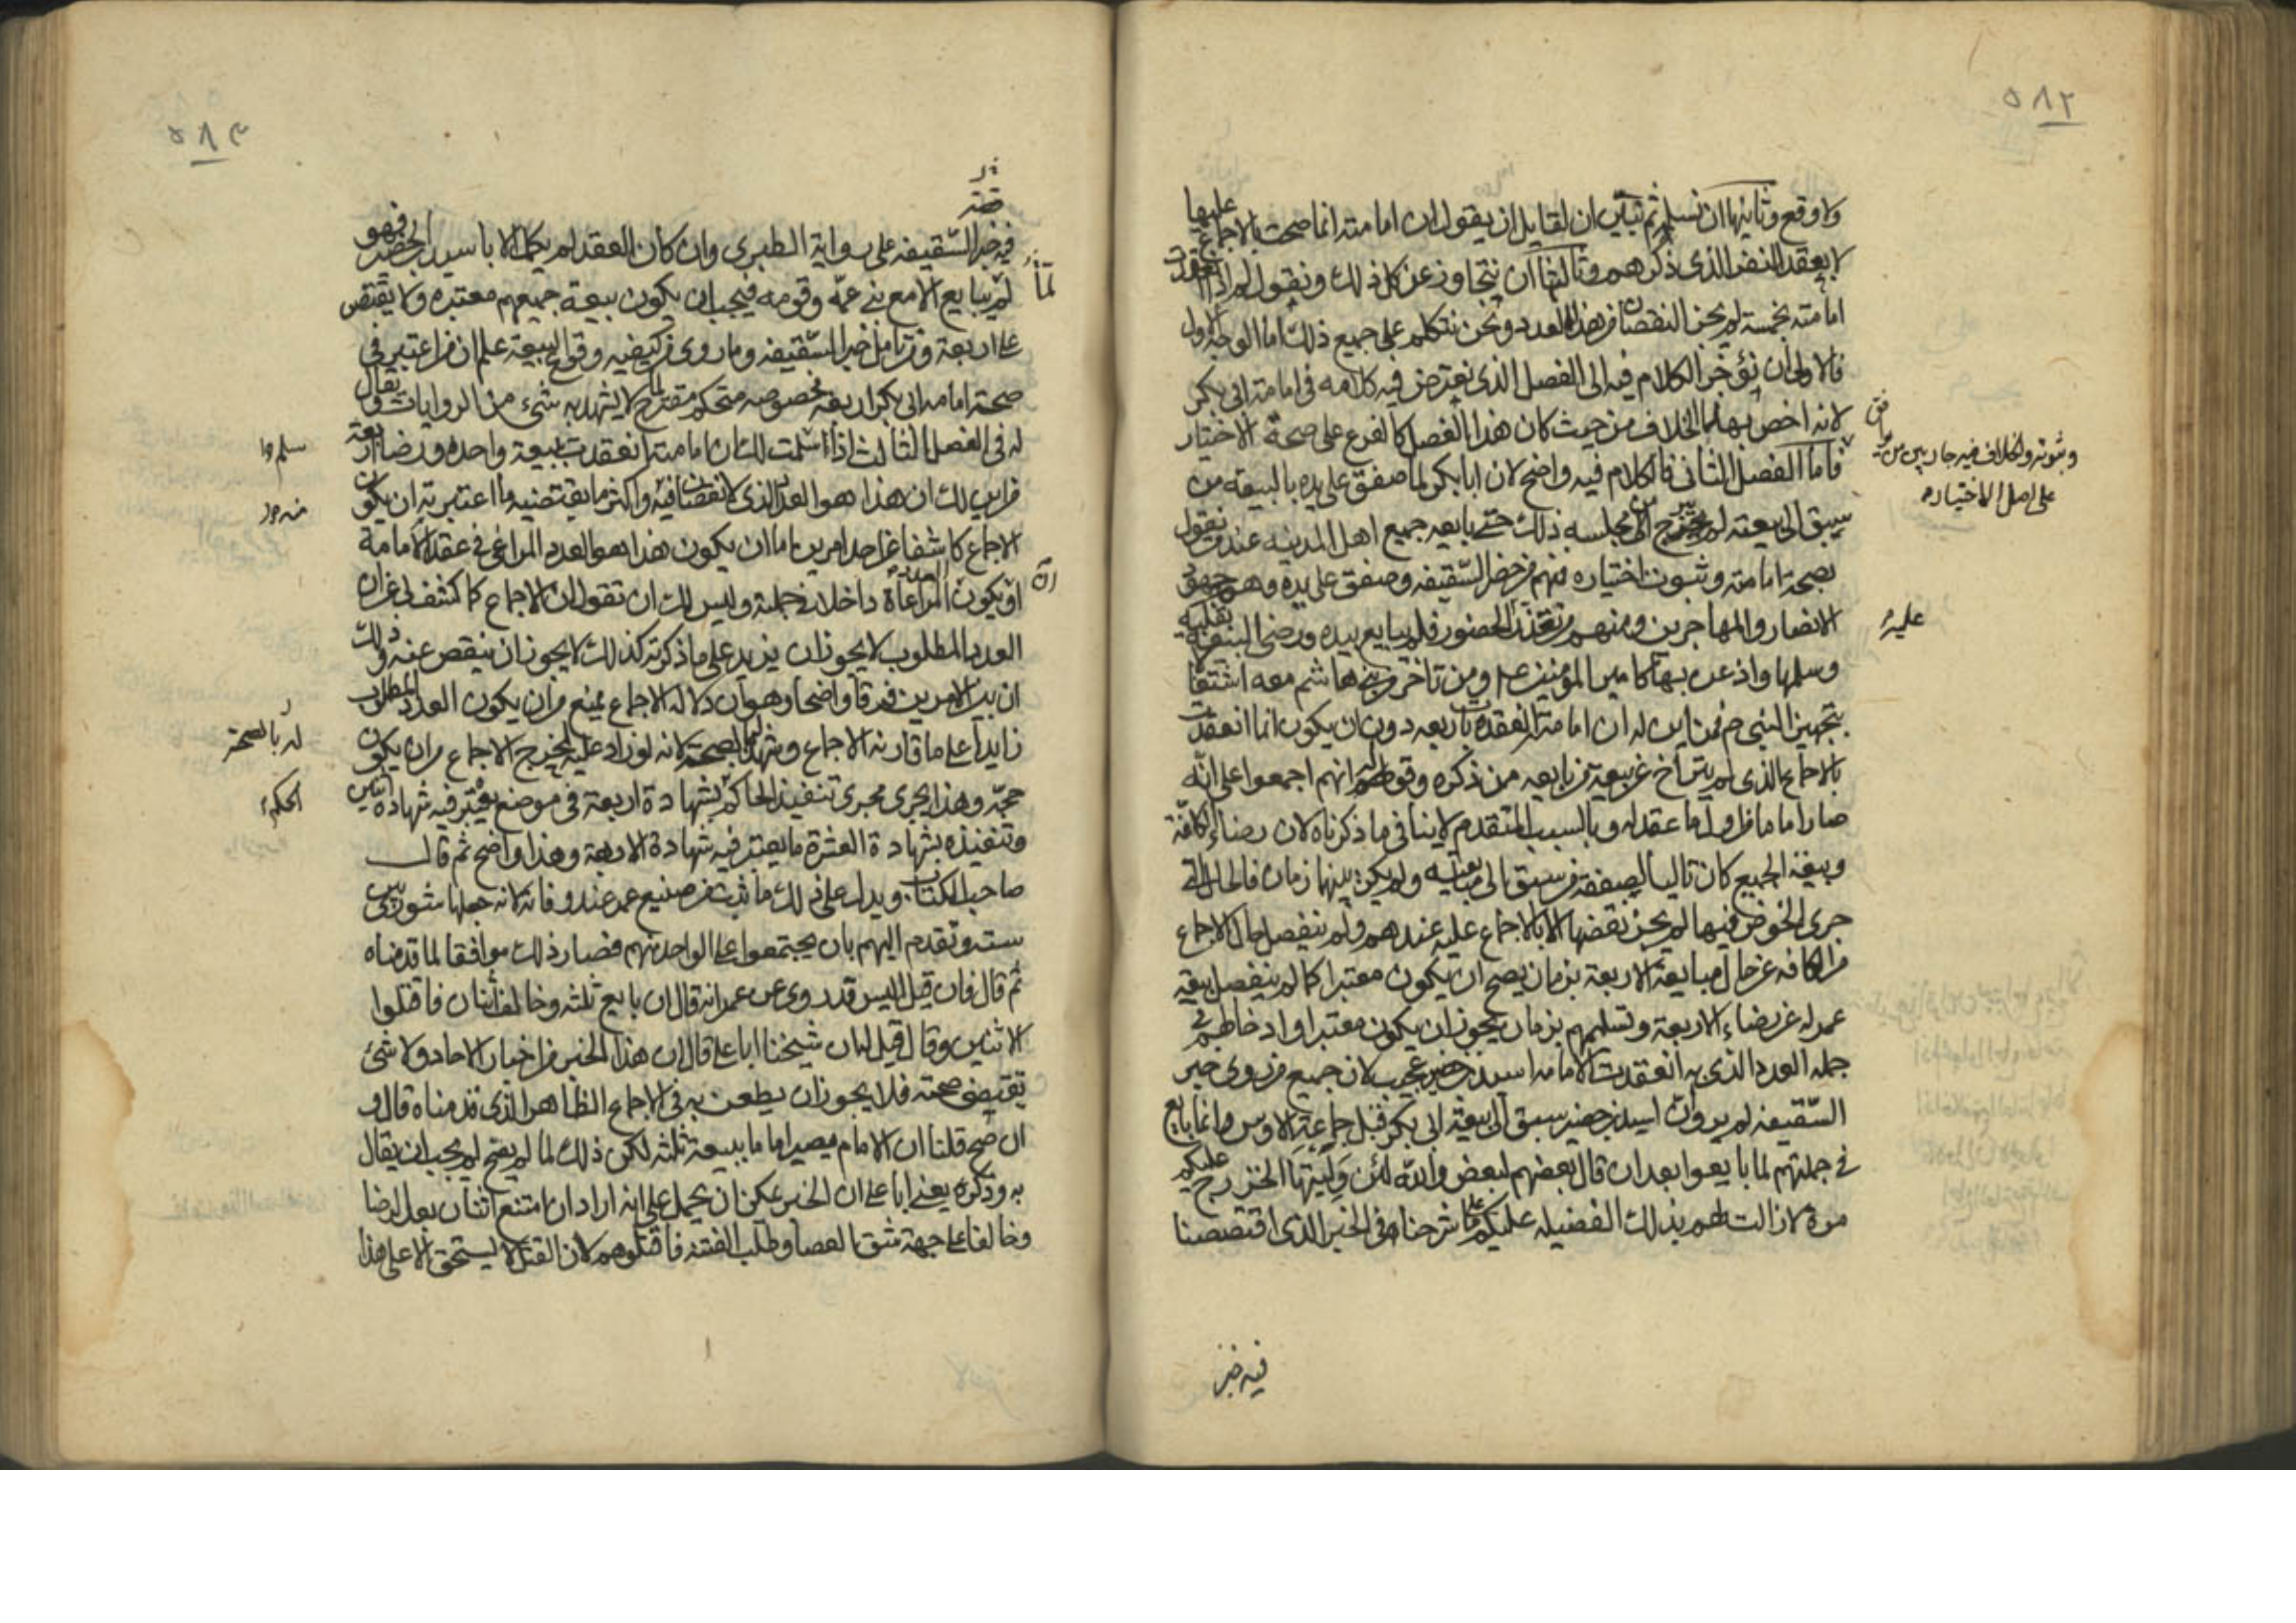 ٥٨٢
ولا وقع وثانيها ان نسلم ثم نبين ان لقايل ان يقول ان امامته انما صحت بالاجماع عليها
لا بعقد النفر الذي ذكرهم وثالثها ان نتجاوز عن كل ذلك ونقول لم اذا انعقدت
امامته بخمسة لم يجز النقصان من هذا العدد ونحن نتكلم على جميع ذلك اما الوجه الاول
فالاولى ان نؤخر الكلام فيه الى الفصل الذي نعترض فيه كلامه في امامة ابي بكر
لانه اخص بهذا الخلاف من حيث كان هذا الفصل كالفرع على صحة الاختيار
وثبوته والخلاف فيه جار بين من
على اصل الاختيار
فاما الفصل الثاني فالكلام فيه واضح لان ابا بكر لما صفق على يده بالبيعة من
سبق الى بيعته لم يخرج عن مجلسه ذلك حتى بايعه جميع اهل المدينة عندهم ونقول
بصحة امامته وثبوت اختياره فمنهم من حضر السقيفة وصفق على يده وهو جمهور
الانصار والمهاجرين ومنهم من تعذر الحضور فلم يبايع بيده ورضى البيعة بقلبه
عليه
وسلمها واذعن بها كامير المؤمنين عليه السلام ومن تاخر من بني هاشم معه اشتغالا
بتجهيز النبي ص فمن اين له ان امامته انعقدت باربعة دون ان يكون انما انعقدت
بالاجماع الذي لم يتراخ عن بيعة من بايعه من ذكره وقولهم انهم اجمعوا على انه
صار اماما من اول ما عقد له وبالسبب المتقدم لا ينافي ما ذكرناه لان رضاء الكافة
وبيعة الجميع كان تاليا لصفقة من سبق الى مبايعته ولم يكن بينهما زمان فالحال التي
جرى الخوض فيها لم يجز نقضها الا بالاجماع عليه عندهم ولم ينفصل حال الاجماع
من الكافة عن حال مبايعة الاربعة بزمان يصح ان يكون معتبرا كما لم ينفصل بيعة
عمر له عن رضاء الاربعة وتسليمهم بزمان يجوز ان يكون معتبرا وادخاطهم في
جملة العدد الذي به انعقدت الامامة اسيد بن حضير عجيب لان جميع من روى خبر
السقيفة لم يرو ان اسيد بن حضير سبق الى بيعة ابي بكر قبل جماعة الاوس وانما بايع
في جملتهم لما بايعوا بعد ان قال بعضهم لبعض والله لئن وليتها الخزرج عليكم
مرة لا زالت لهم بذلك الفضيلة عليكم على ما شرحناه في الخبر الذي اقتصصنا
فيه خبر
٥٨٣
قصة
فيه خبر السقيفة على رواية الطبري وان كان العقد لم يكمل الا باسيد بن الحضير فهو
لما
لم يبايع الا مع بني عمه وقومه فيجب ان يكون بيعة جميعهم معتبرة ولا يقتصر
على اربعة ومن تامل خبر السقيفة وما روى من كيفية وقوع البيعة علم ان من اعتبر في
صحة امامة ابي بكر اربعة مخصوصة متحكم مقترح لما لا يشهد به شيء من الروايات ويقال
له في الفصل الثالث اذا سلمت لك ان امامته انعقدت ببيعة واحد ورضا اربعة
فمن اين لك ان هذا هو العدد الذي لا نقصان فيه واكثر ما يقتضيه ما اعتبرته ان يكون
الاجماع كاشفا عن احد امرين اما ان يكون هذا هو العدد المراعى في عقد الامامة
او يكون العدد المراعاة داخلا في جملته وليس لك ان تقول ان الاجماع كما كشف لي عن ان
العدد المطلوب لا يجوز ان يزيد على ما ذكرته كذلك لا يجوز ان ينقص عنه وذلك
ان بين الامرين فرقا واضحا وهو ان دلالة الاجماع يمنع من ان يكون العدد المطلوب
زايدا على ما قارنه الاجماع وشهد له بالصحة لانه لو زاد عليه لخرج الاجماع من ان يكون
له بالصحة
حجة وهذا يجري مجرى تنفيذ الحاكم بشهادة اربعة في موضع يعتبر فيه شهادة اثنين
الحكم
وتنفيذه بشهادة العشرة ما يعتبر فيه شهادة الاربعة وهذا واضح ثم قال
صاحب الكتاب ويدل على ذلك ما ثبت من صنيع عمر عند وفاته لانه جعلها شورى بين
ستة وتقدم اليهم بان يجتمعوا على الواحد منهم فصار ذلك موافقا لما قدمناه
ثم قال فان قيل اليس قد روى عن عمر انه قال ان بايع ثلثه وخالف اثنان فاقتلوا
الاثنين وقال قيل له ان شيخنا ابا علي قال ان هذا الخبر من اخبار الاحاد ولا شئ
تقتضي صحته فلا يجوز ان يطعن به في الاجماع الظاهر الذي قدمناه قال و
ان صح قلنا ان الامام يصير اماما ببيعة ثلثه لكن ذلك لما لم يصح لم يجب ان يقال
به وذكره يعني ابا علي ان الخبر يمكن ان يحمل على انه اراد ان امتنع اثنان بعد الرضا
وخالفا على جهة شق العصا وطلب الفتنة فاقتلوهم لان القتل لا يستحق الا على هذا